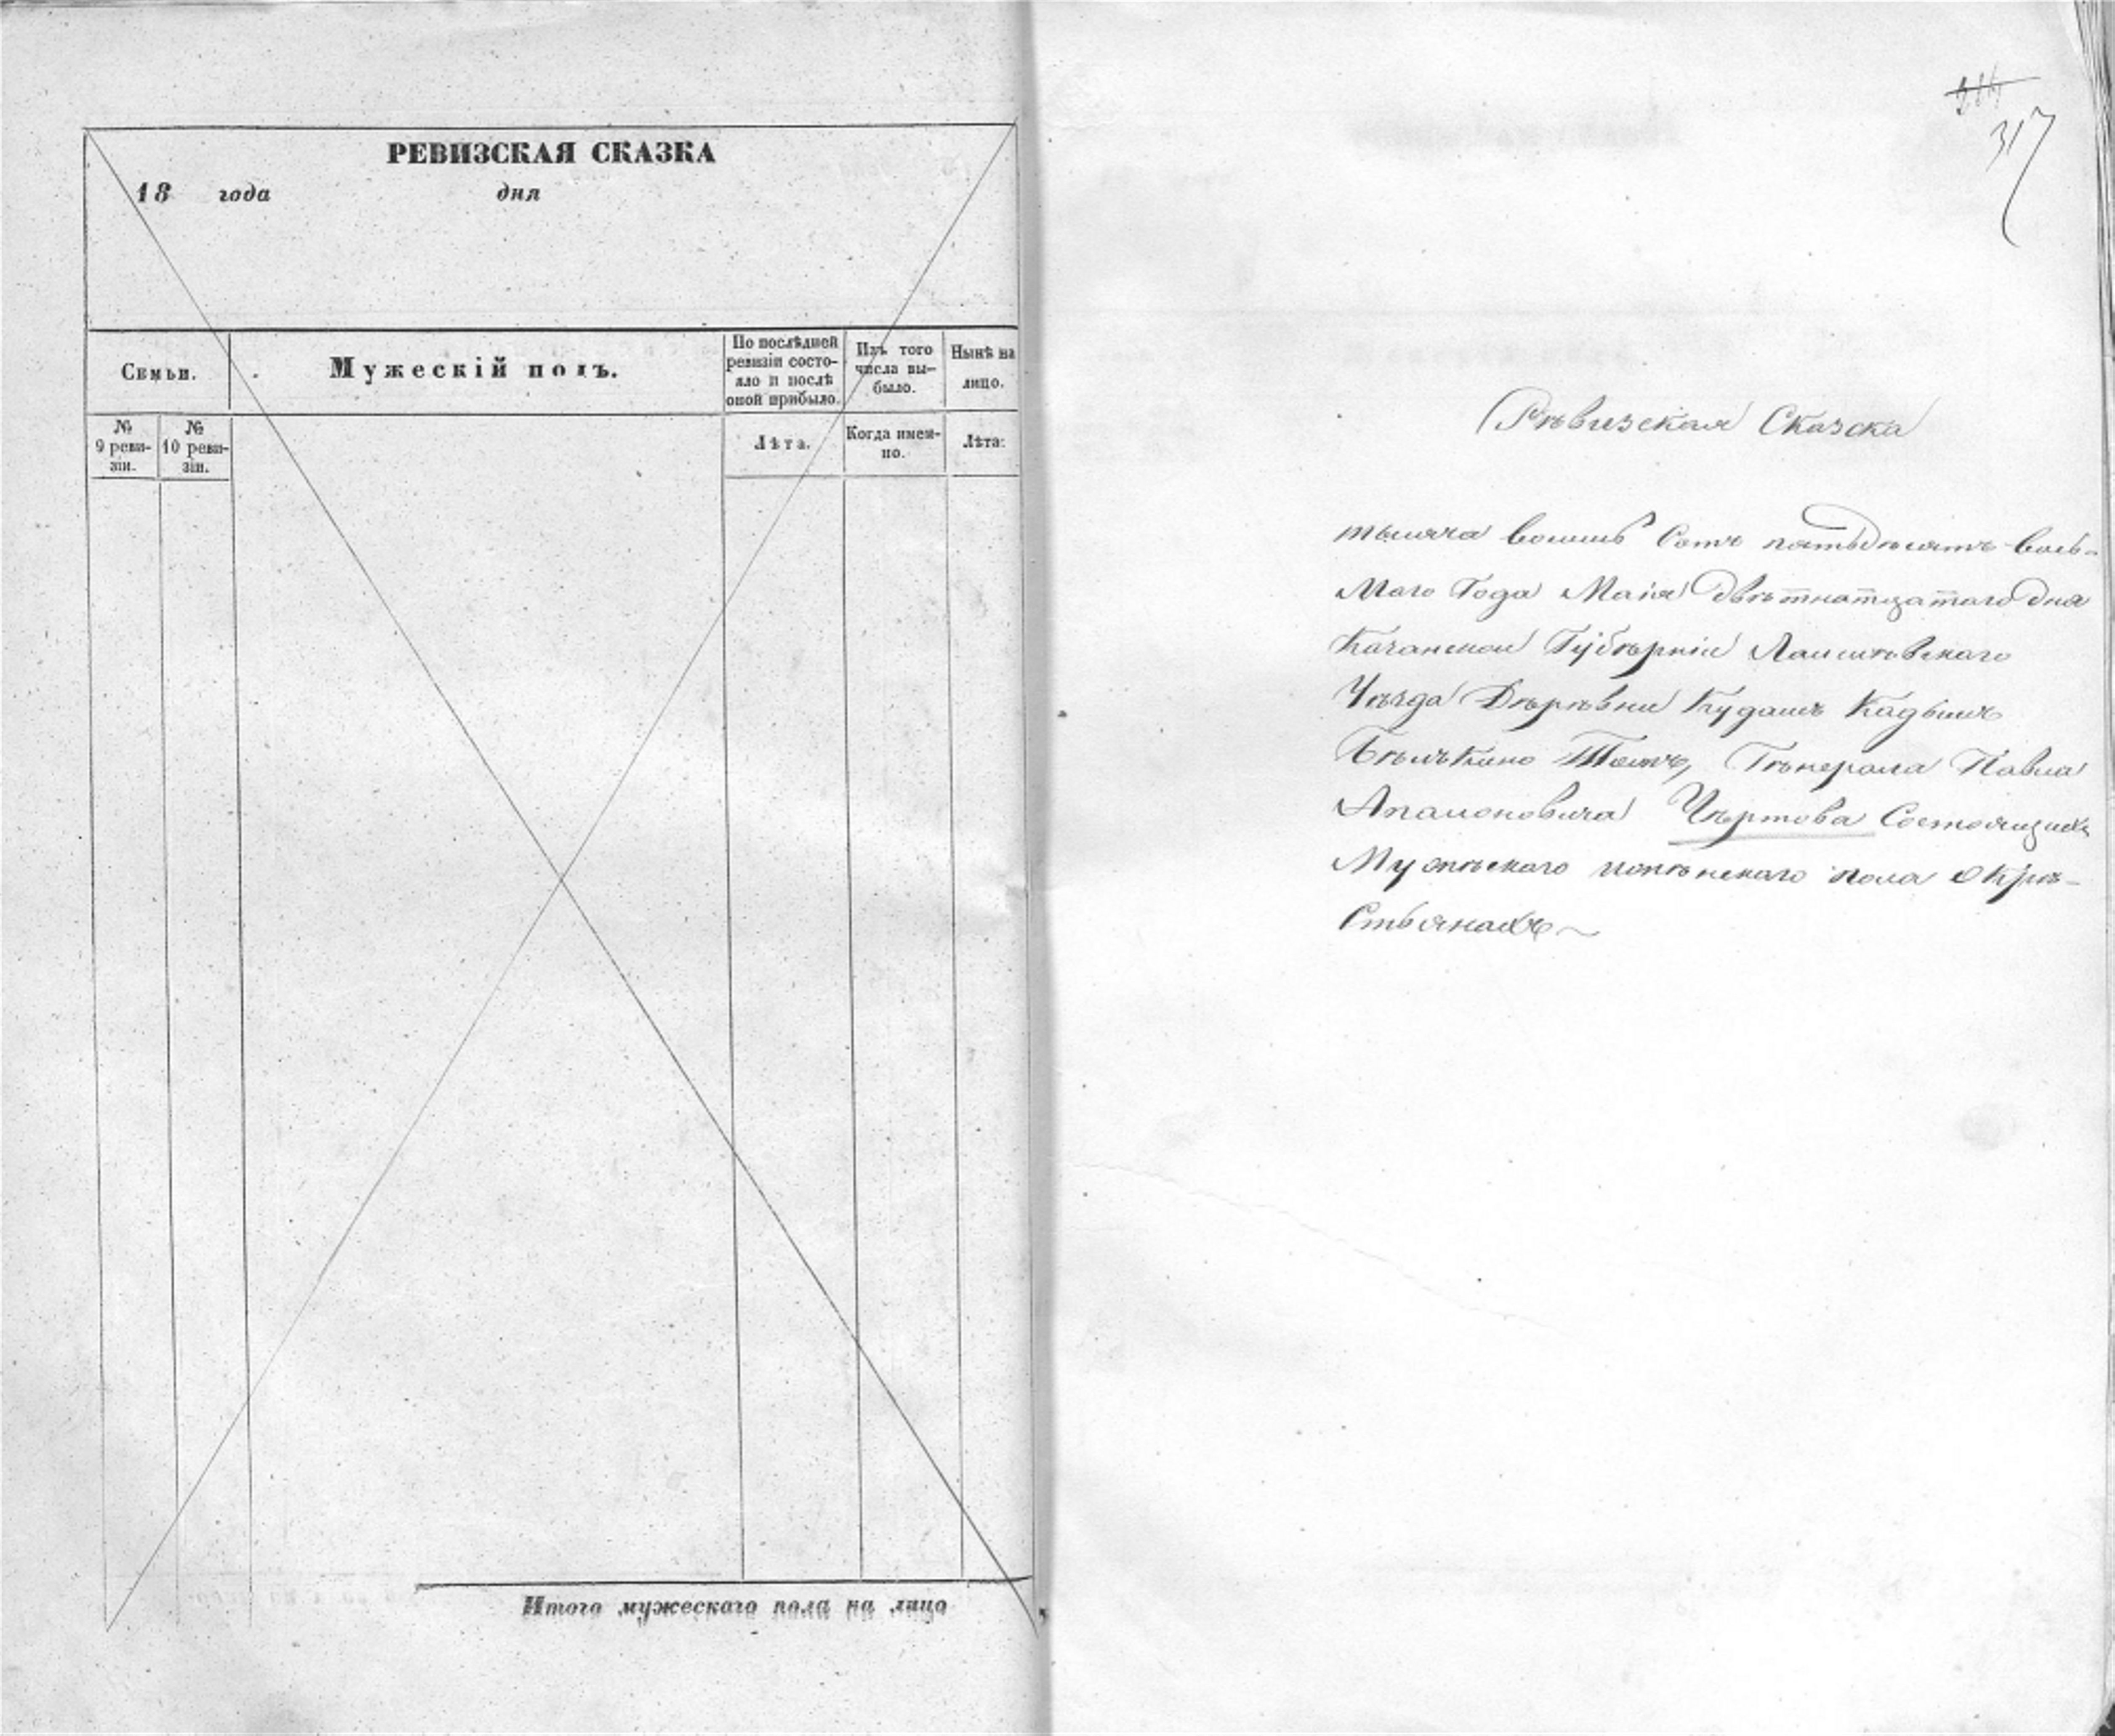 РЕВИЗСКАЯ СКАЗКА
18 года дня
Семьи.
Мужескій полъ.
По послѣдней ревизіи состояло и послѣ оной прибыло.
Изъ того числа вы-
было.
Нынѣ на
лицо.
№
9 реви-
зіи.
№
10 реви-
зіи.
Лѣта.
Когда имен-
но.
Лѣта:
Итого мужескаго пола на лицо
317
Рѣвизская Сказска
тысяча восемь Сотъ пятьдѣсятъ вось-
Маго Года Маія двѣтнатцатаго дня
Казанской Губѣрніи Лаишѣвскаго
Уѣзда Дѣрѣвни Кудашъ Кадышъ
Бѣлькино Тожъ, Гѣнерала Павла
Апалоновича Чѣртова Состоящихъ
Мужѣскаго ижѣнскаго пола окрѣ-
Стьянахъ